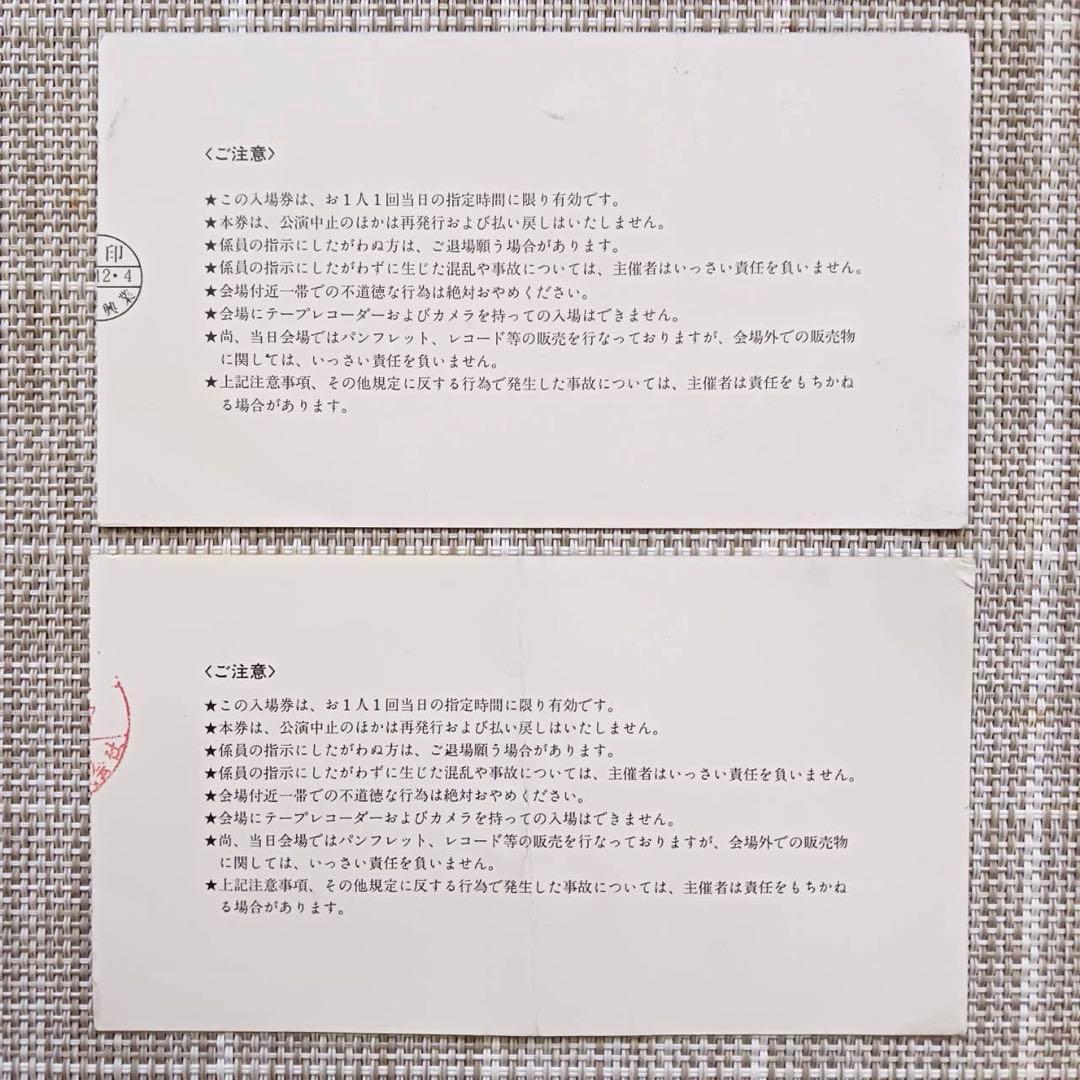 〈ご注意〉
★この入場券は、お1人1回当日の指定時間に限り有効です。
★本券は、公演中止のほかは再発行および払い戻しはいたしません。
★係員の指示にしたがわぬ方は、ご退場願う場合があります。
★係員の指示にしたがわずに生じた混乱や事故については、主催者はいっさい責任を負いません。
★会場付近一帯での不道徳な行為は絶対おやめください。
★会場にテープレコーダーおよびカメラを持っての入場はできません。
★尚、当日会場ではパンフレット、レコード等の販売を行なっておりますが、会場外での販売物
に関しては、いっさい責任を負いません。
★上記注意事項、その他規定に反する行為で発生した事故については、主催者は責任をもちかね
る場合があります。
印
12・4
興業
〈ご注意〉
★この入場券は、お1人1回当日の指定時間に限り有効です。
★本券は、公演中止のほかは再発行および払い戻しはいたしません。
★係員の指示にしたがわぬ方は、ご退場願う場合があります。
★係員の指示にしたがわずに生じた混乱や事故については、主催者はいっさい責任を負いません。
★会場付近一帯での不道徳な行為は絶対おやめください。
★会場にテープレコーダーおよびカメラを持っての入場はできません。
★尚、当日会場ではパンフレット、レコード等の販売を行なっておりますが、会場外での販売物
に関しては、いっさい責任を負いません。
★上記注意事項、その他規定に反する行為で発生した事故については、主催者は責任をもちかね
る場合があります。